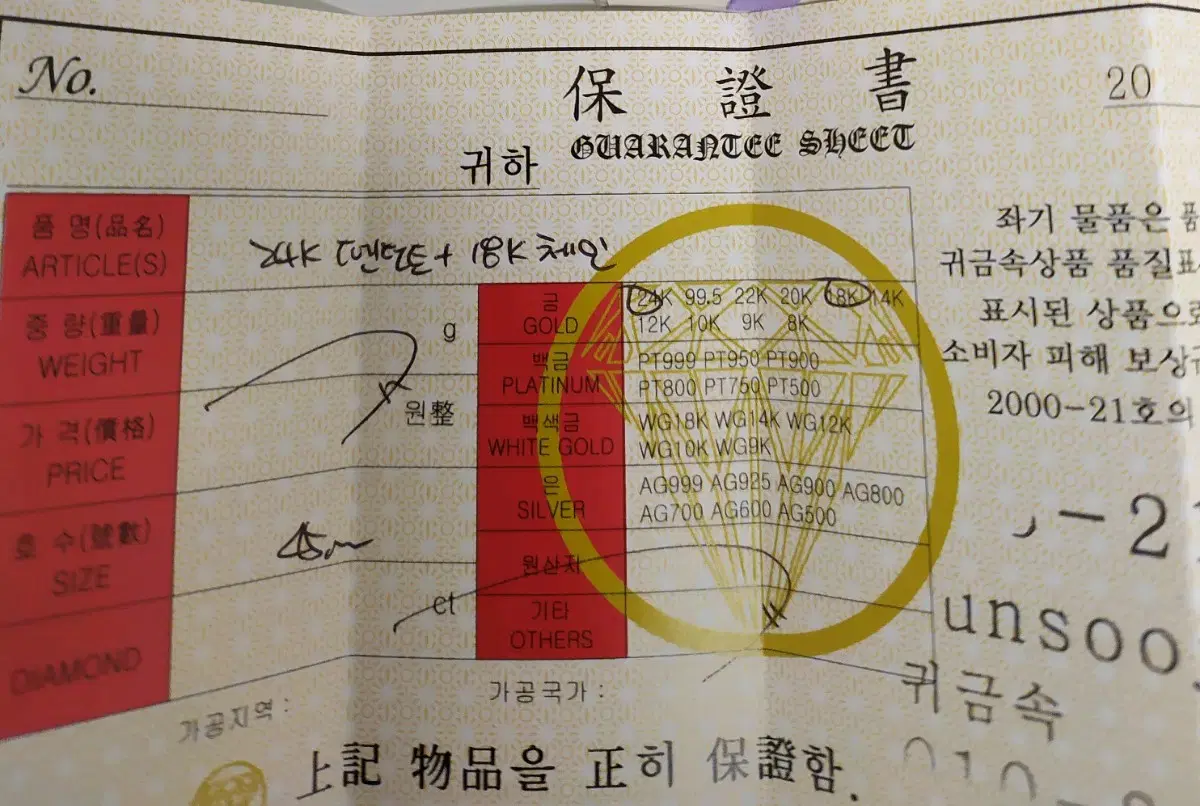 No.
保 證 書
20
GUARANTEE SHEET
귀하
품 명(品名)
ARTICLE(S)
24K 펜던트 + 18K 체인
중 량(重量)
WEIGHT
g
가 격(價格)
PRICE
원整
호 수(號數)
SIZE
45cm
DIAMOND
ct
금
GOLD
24K 99.5 22K 20K 18K 14K
12K 10K 9K 8K
백금
PLATINUM
PT999 PT950 PT900
PT800 PT750 PT500
백색금
WHITE GOLD
WG18K WG14K WG12K
WG10K WG9K
은
SILVER
AG999 AG925 AG900 AG800
AG700 AG600 AG500
원산지
기타
OTHERS
좌기 물품은 품
귀금속상품 품질표
표시된 상품으로
소비자 피해 보상
2000-21호의
-2
unsoo
귀금속
010-
가공지역 :
가공국가 :
上記 物品을 正히 保證함.